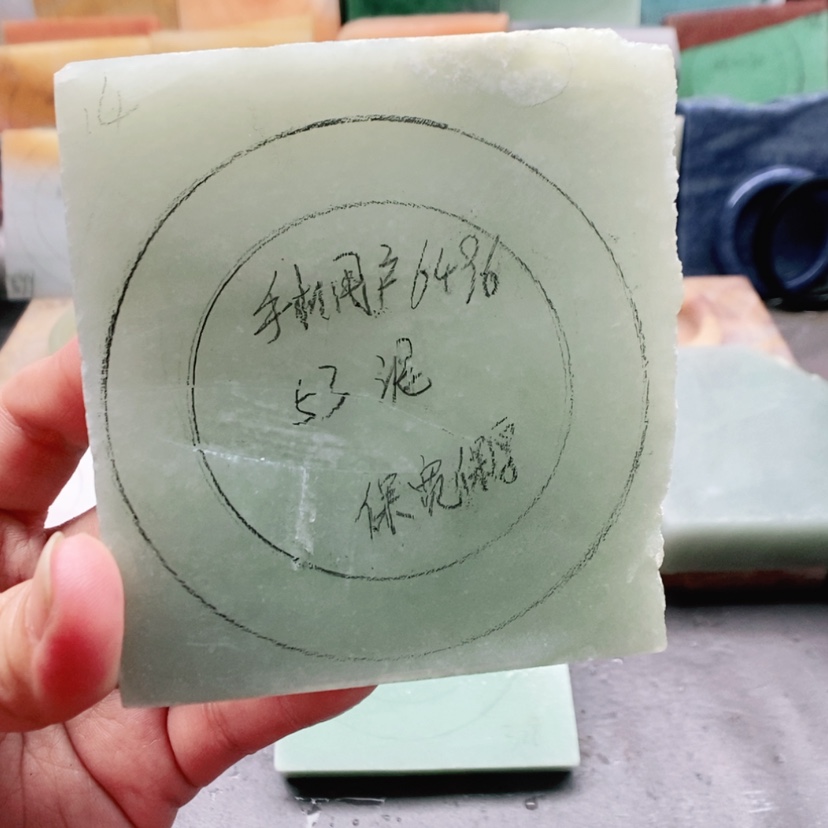 14
手机用户6496
53 泥
保宽保厚